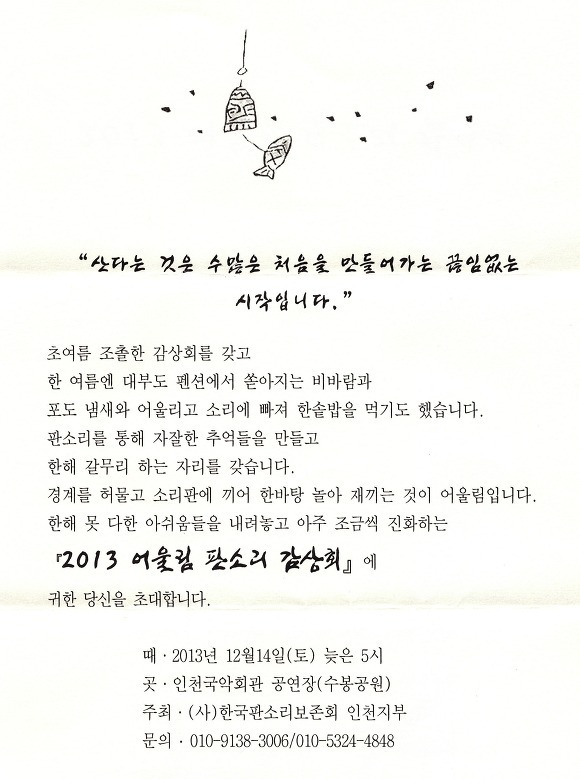 “산다는 것은 수많은 처음을 만들어가는 끊임없는
시작입니다.”
초여름 조촐한 감상회를 갖고
한 여름엔 대부도 펜션에서 쏟아지는 비바람과
포도 냄새와 어울리고 소리에 빠져 한솥밥을 먹기도 했습니다.
판소리를 통해 자잘한 추억들을 만들고
한해 갈무리 하는 자리를 갖습니다.
경계를 허물고 소리판에 끼어 한바탕 놀아 재끼는 것이 어울림입니다.
한해 못 다한 아쉬움들을 내려놓고 아주 조금씩 진화하는
『2013 어울림 판소리 감상회』에
귀한 당신을 초대합니다.
때 · 2013년 12월14일(토) 늦은 5시
곳 · 인천국악회관 공연장(수봉공원)
주최 · (사)한국판소리보존회 인천지부
문의 · 010-9138-3006/010-5324-4848